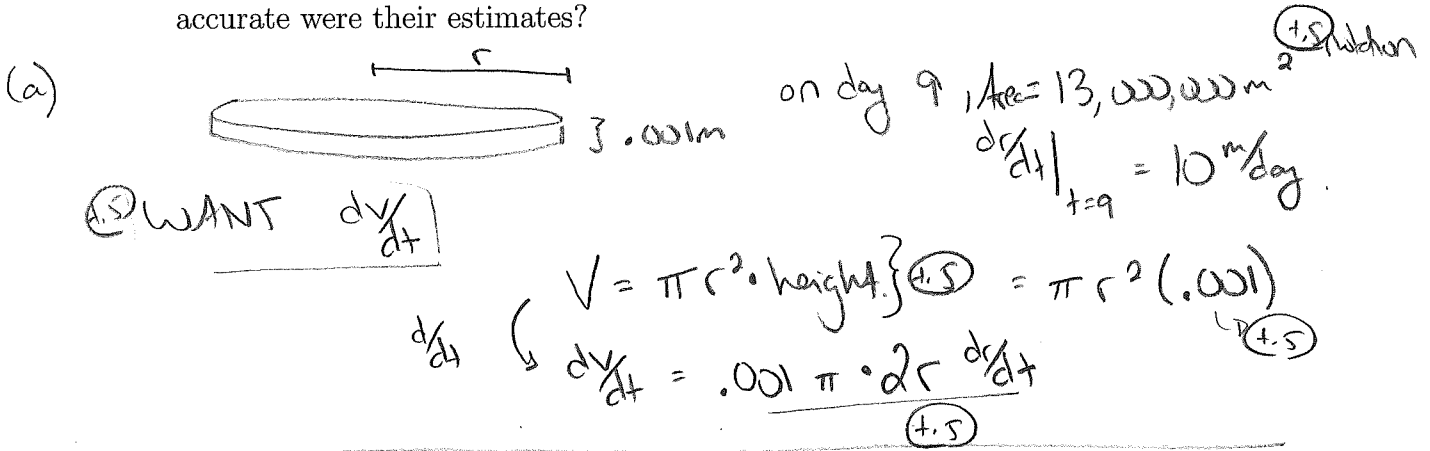 accurate were their estimates?
(a)
r
} .001m
on day 9, Area = 13,000,000 m² (+.5) notation
dr/dt|t=9 = 10 m/day.
(+.5) WANT dV/dt
V = πr² · height. } (+.5) = πr² (.001)
(+.5)
d/dt
dV/dt = .001 π · 2r dr/dt
(+.5)